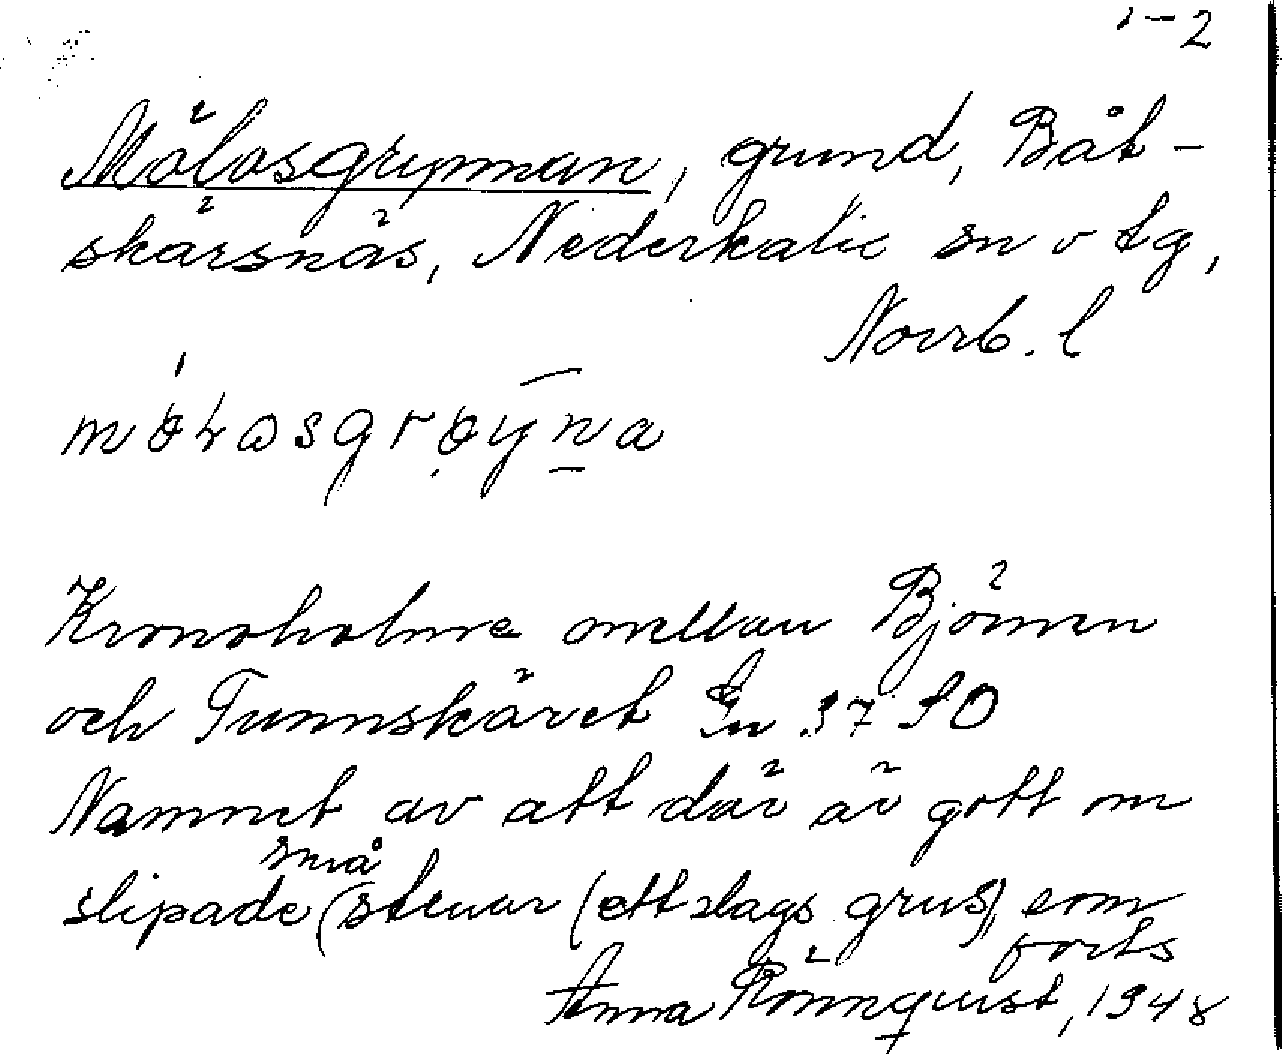 1-2
Mölasgrynnan, grund, Båt-
skärsnäs, Nederkalix sn o tg,
Norrb. l
Kronoholme mellan Björnen
och Tunnskäret En 37 SO
Namnet av att där är gott om
små
slipade (stenar (ett slags grus) som
forts
Anna Rönnqvist, 1948